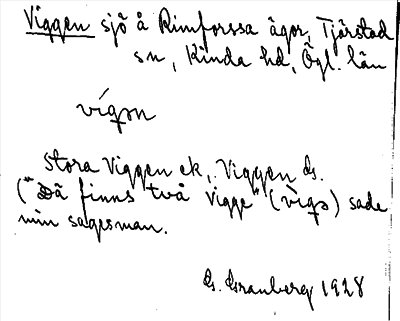 Viggen sjö å Rimforssa ägor, Tjärstad
sn, Kinda hd, Ögl. län
vígən
Stora Viggen ek., Viggen ds.
("Dä finns två Vigge" (vìgə) sade
min sagesman.
G. Granberg 1928